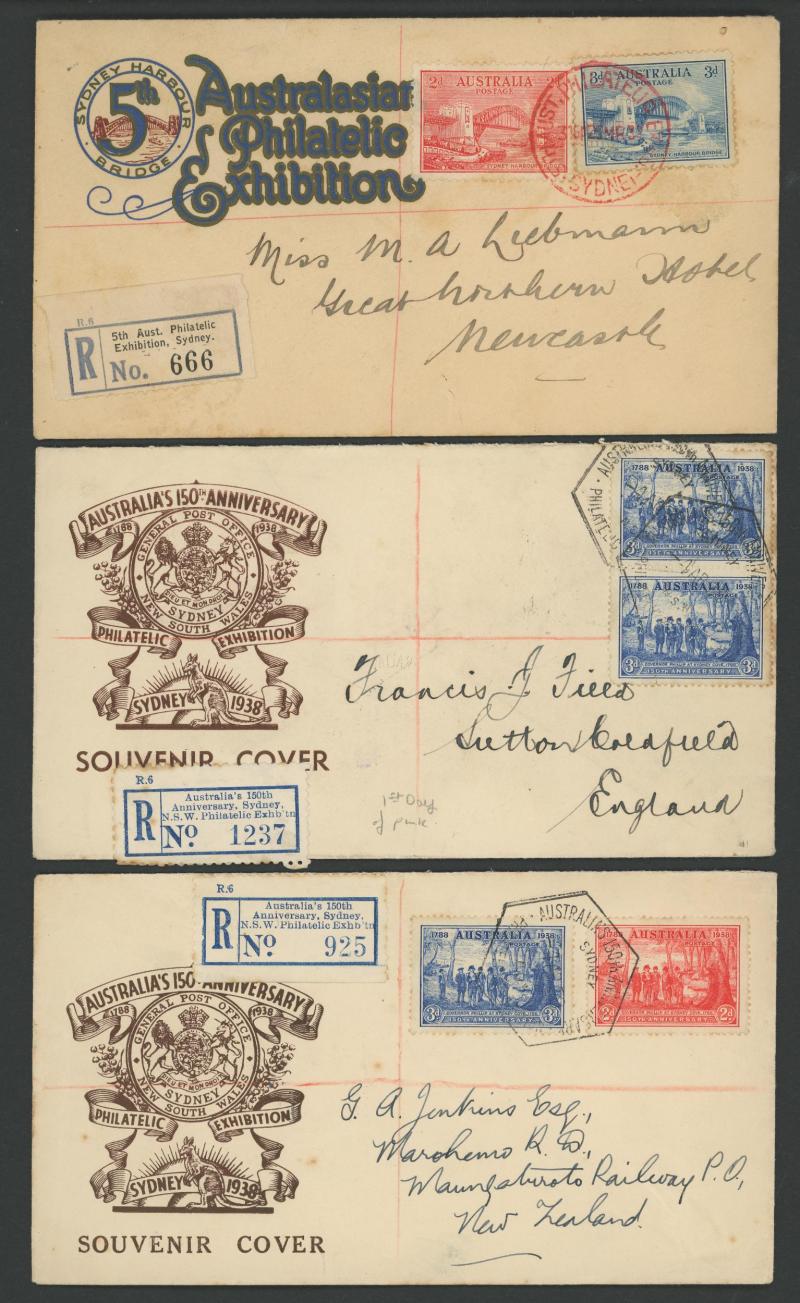 SYDNEY HARBOUR
5th
BRIDGE
Australasian
Philatelic
& Exhibition
2d AUSTRALIA 2d
POSTAGE
SYDNEY HARBOUR BRIDGE
3d AUSTRALIA 3d
POSTAGE
SYDNEY HARBOUR BRIDGE
AUST. PHILATELIC
SYDNEY
Miss M. A Liebmann
Great Northern Hotel
Newcastle
R.6
5th Aust. Philatelic
Exhibition, Sydney.
R No. 666
AUSTRALIA'S 150TH ANNIVERSARY
1788 1938
GENERAL POST OFFICE
DIEU ET MON DROIT
SYDNEY
NEW SOUTH WALES
PHILATELIC EXHIBITION
SYDNEY 1938
SOUVENIR COVER
1788 AUSTRALIA 1938
POSTAGE
GOVERNOR PHILLIP AT SYDNEY COVE, 1788
3d 150TH ANNIVERSARY 3d
1788 AUSTRALIA 1938
POSTAGE
GOVERNOR PHILLIP AT SYDNEY COVE, 1788
3d 150TH ANNIVERSARY 3d
Francis J. Field
Sutton Coldfield
England
1st Day
of
R.6
Australia's 150th
Anniversary, Sydney,
N.S.W. Philatelic Exhb'tn
R No 1237
R.6
Australia's 150th
Anniversary, Sydney,
N.S.W. Philatelic Exhb'tn
R No 925
AUSTRALIA'S 150TH ANNIVERSARY
1788 1938
GENERAL POST OFFICE
DIEU ET MON DROIT
SYDNEY
NEW SOUTH WALES
PHILATELIC EXHIBITION
SYDNEY 1938
SOUVENIR COVER
1788 AUSTRALIA 1938
POSTAGE
GOVERNOR PHILLIP AT SYDNEY COVE, 1788
3d 150TH ANNIVERSARY 3d
1788 AUSTRALIA 1938
POSTAGE
GOVERNOR PHILLIP AT SYDNEY COVE, 1788
2d 150TH ANNIVERSARY 2d
AUSTRALIA'S 150th
SYDNEY
G. A. Jenkins Esq.,
Marohemo R. D.,
Maungaturoto Railway P.O,
New Zealand.